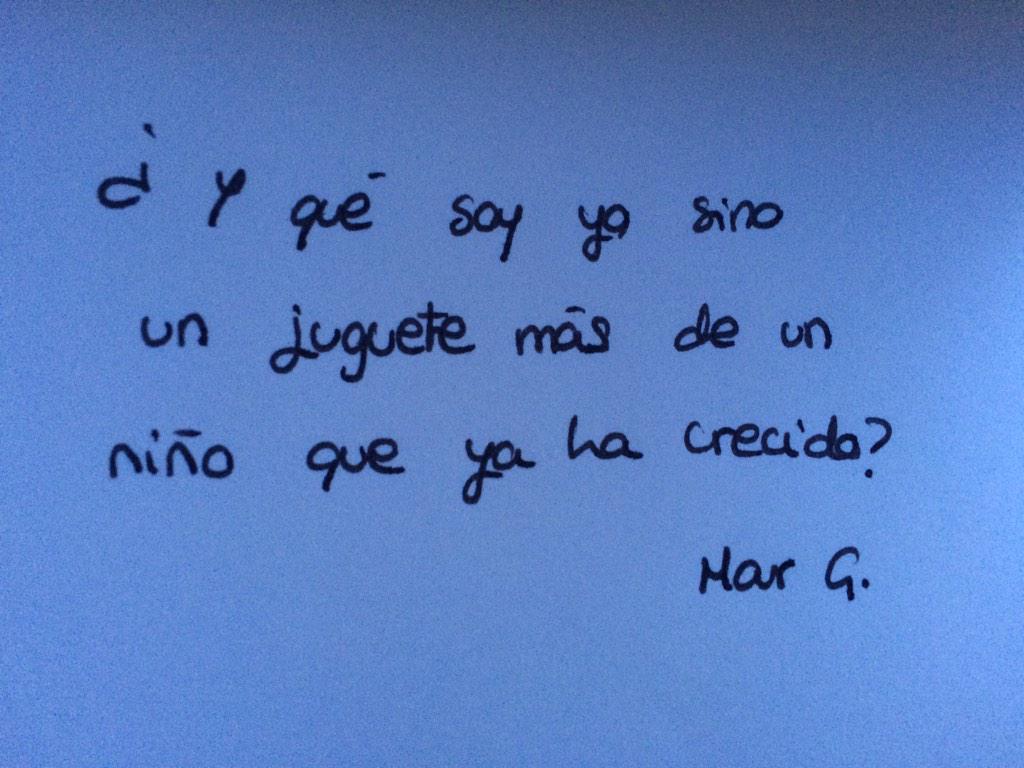 ¿Y qué soy ya sino
un juguete más de un
niño que ya ha crecido?
Mar G.